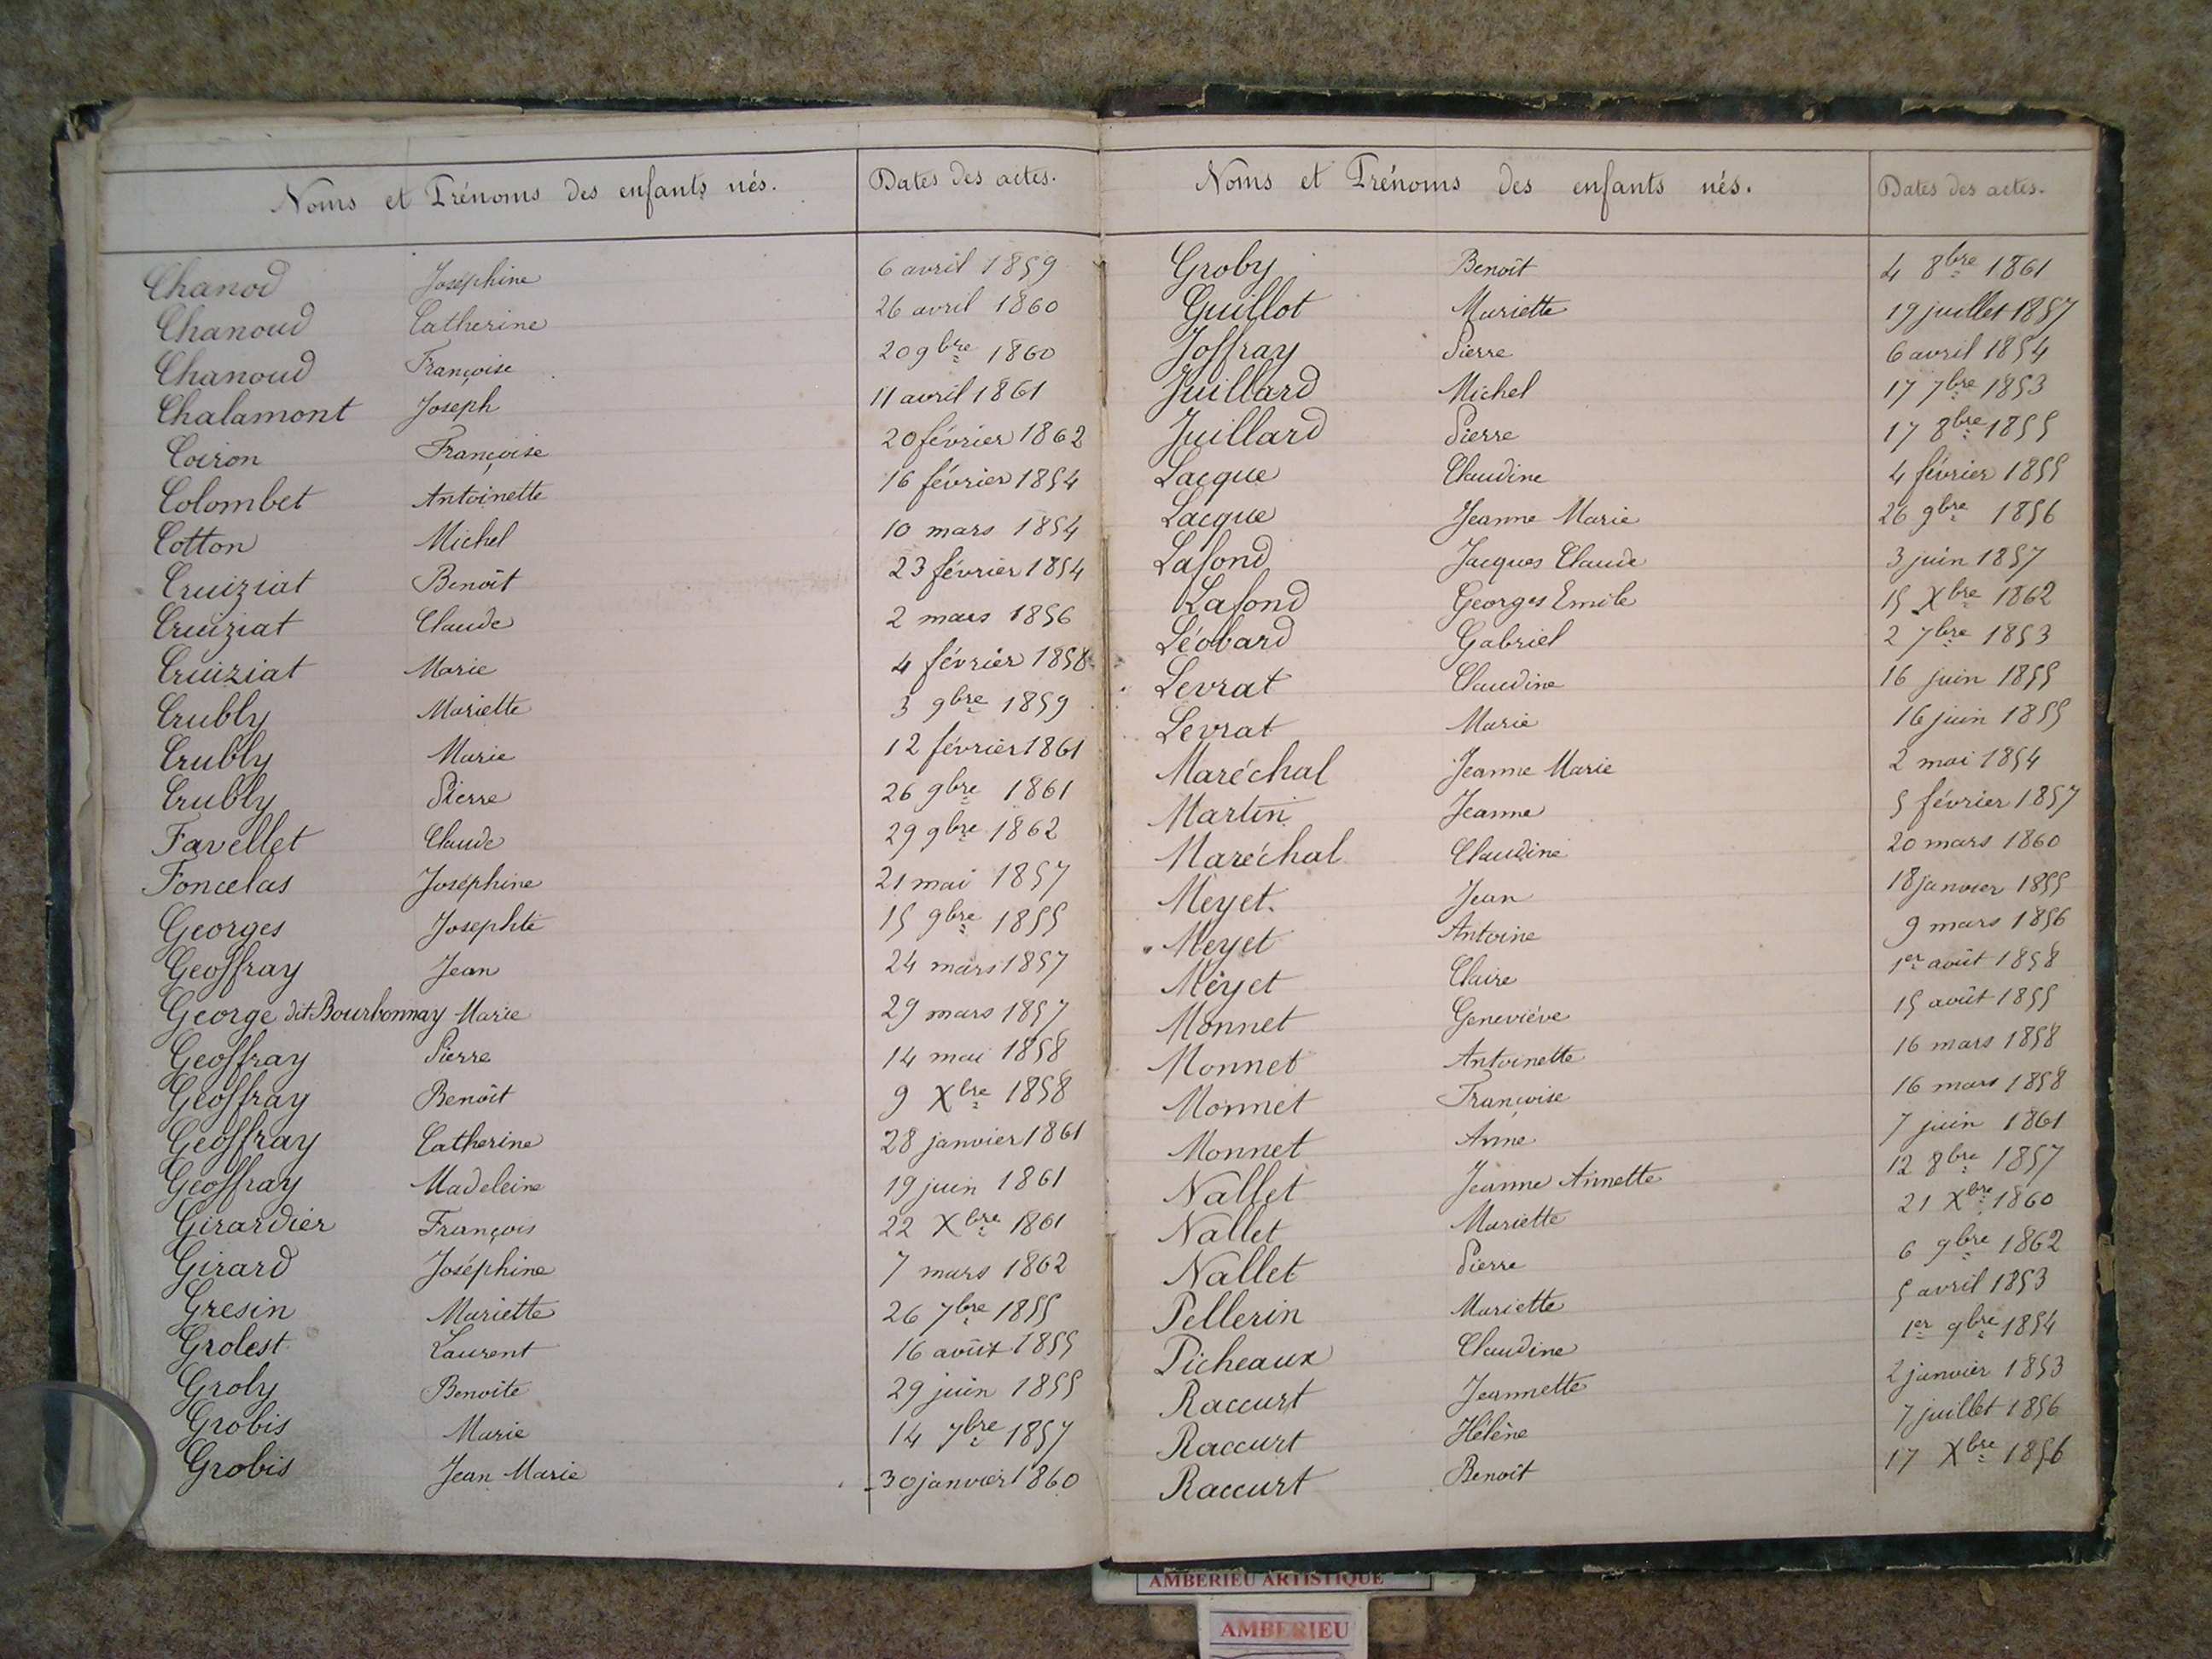 Noms et Prénoms des enfants nés. Dates des actes.
Chanod Joséphine 6 avril 1859
Chanoud Catherine 26 avril 1860
Chanoud Françoise 20 9bre 1860
Chalamont Joseph 11 avril 1861
Coiron Françoise 20 février 1862
Colombet Antoinette 16 février 1854
Cotton Michel 10 mars 1854
Cruiziat Benoît 23 février 1854
Cruiziat Claude 2 mars 1856
Cruiziat Marie 4 février 1858
Crubly Mariette 3 9bre 1859
Crubly Marie 12 février 1861
Crubly Pierre 26 9bre 1861
Favellet Claude 29 9bre 1862
Foncelas Joséphine 21 mai 1857
Georges Josephte 15 9bre 1855
Geoffray Jean 24 mars 1857
George dit Bourbonnay Marie 29 mars 1857
Geoffray Pierre 14 mai 1858
Geoffray Benoit 9 Xbre 1858
Geoffray Catherine 28 janvier 1861
Geoffray Madeleine 19 juin 1861
Girardier François 22 Xbre 1861
Girard Joséphine 7 mars 1862
Gresin Mariette 26 7bre 1855
Grolest Laurent 16 août 1855
Groly Benoite 29 juin 1855
Grobis Marie 14 7bre 1857
Grobis Jean Marie 30 janvier 1860
Noms et Prénoms des enfants nés. Dates des actes.
Groby Benoît 4 8bre 1861
Guillot Mariette 19 juillet 1857
Joffray Pierre 6 avril 1854
Juillard Michel 17 7bre 1853
Juillard Pierre 17 8bre 1855
Lacque Claudine 4 février 1855
Lacque Jeanne Marie 26 9bre 1856
Lafond Jacques Claude 3 juin 1857
Lafond Georges Emile 15 Xbre 1862
Léobard Gabriel 2 7bre 1853
Levrat Claudine 16 juin 1855
Levrat Marie 16 juin 1855
Maréchal Jeanne Marie 2 mai 1854
Martin Jeanne 5 février 1857
Maréchal Claudine 20 mars 1860
Meyet Jean 18 janvier 1855
Meyet Antoine 9 mars 1856
Meyet Claire 1er août 1858
Monnet Geneviève 15 août 1855
Monnet Antoinette 16 mars 1858
Monnet Françoise 16 mars 1858
Monnet Anne 7 juin 1861
Nallet Jeanne Annette 12 8bre 1857
Nallet Mariette 21 Xbre 1860
Nallet Pierre 6 9bre 1862
Pellerin Mariette 5 avril 1853
Picheaux Claudine 1er 9bre 1854
Raccurt Jeannette 2 janvier 1853
Raccurt Hélène 7 juillet 1856
Raccurt Benoit 17 Xbre 1856
AMBERIEU ARTISTIQUE
AMBERIEU